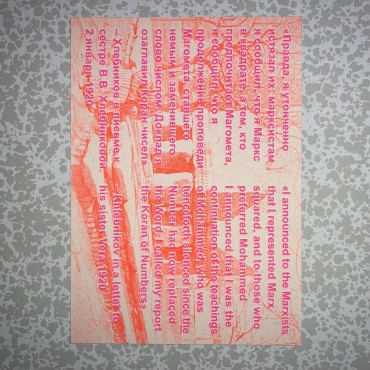 «Правда, я утонченно
истязал их: марксистам
я сообщил, что я Маркс
в квадрате, а тем, кто
предпочитает Магомета,
я сообщил, что я
продолжение проповеди
Магомета, ставшего
немым и заменившего
слово числом. Доклад я
озаглавил Коран чисел»
– Хлебников в письме к
сестре В.В. Хлебниковой,
2 января 1920
«I announced to the Marxists
that I represented Marx
squared, and to those who
preferred Mohammed
I announced that I was the
continuation of the teachings
of Mohammed, who was
henceforth silenced since the
Number had now replaced
the Word. I called my report
the Koran of Numbers»
– Khlebnikov in a letter to
his sister Vera, 1920